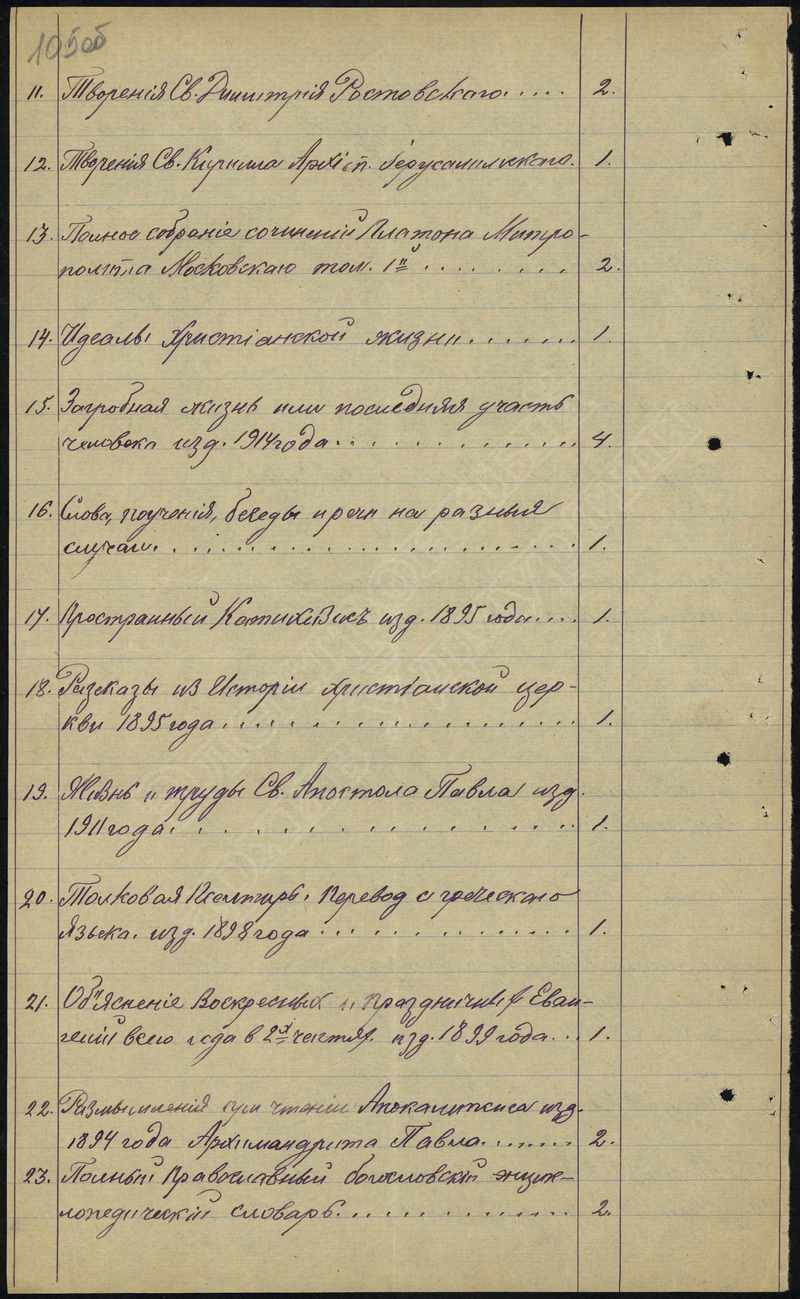 105об
11. Творенія Св. Димитрія Ростовскаго..... 2.
12. Творенія Св. Кирилла Архіеп. Іерусалимскаго. 1.
13. Полное собраніе сочиненій Платона Митро-
полита Московскаго том. 1й ........ 2.
14. Идеалы Христіанской жизни ....... 1.
15. Загробная жизнь или последняя участь
человека изд. 1914 года ............. 4.
16. Слова, поученія, беседы и речи на разныя
случаи ................... 1.
17. Пространный Катихизисъ изд. 1895 года .... 1.
18. Разсказы из Исторіи Христіанской цер-
кви 1895 года ................. 1.
19. Жизнь и труды Св. Апостола Павла изд.
1911 года ................. 1.
20. Толковая Псалтирь. Перевод с греческаго
языка. изд. 1898 года ............. 1.
21. Об'ясненіе Воскресных и праздничных Еван-
гелій всего года в 2х частях. изд. 1899 года ... 1.
22. Размышленія при чтеніи Апокалипсиса изд.
1894 года Архимандрита Павла ....... 2.
23. Полный Православный богословскій энцик-
лопедическій словарь ............. 2.